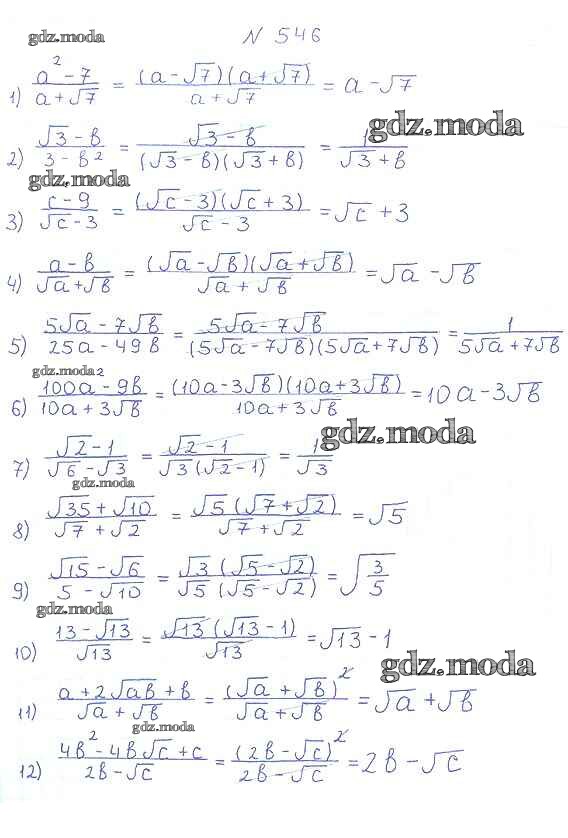 gdz.moda
N 546
1) (a² - 7)/(a + √7) = ((a - √7)(a + √7))/(a + √7) = a - √7
gdz.moda
2) (√3 - в)/(3 - в²) = (√3 - в)/((√3 - в)(√3 + в)) = 1/(√3 + в)
gdz.moda
3) (c - 9)/(√c - 3) = ((√c - 3)(√c + 3))/(√c - 3) = √c + 3
4) (a - в)/(√a + √в) = ((√a - √в)(√a + √в))/(√a + √в) = √a - √в
5) (5√a - 7√в)/(25a - 49в) = (5√a - 7√в)/((5√a - 7√в)(5√a + 7√в)) = 1/(5√a + 7√в)
gdz.moda
6) (100a² - 9в)/(10a + 3√в) = ((10a - 3√в)(10a + 3√в))/(10a + 3√в) = 10a - 3√в
gdz.moda
7) (√2 - 1)/(√6 - √3) = (√2 - 1)/(√3(√2 - 1)) = 1/√3
gdz.moda
8) (√35 + √10)/(√7 + √2) = (√5(√7 + √2))/(√7 + √2) = √5
9) (√15 - √6)/(5 - √10) = (√3(√5 - √2))/(√5(√5 - √2)) = √(3/5)
gdz.moda
10) (13 - √13)/√13 = (√13(√13 - 1))/√13 = √13 - 1
gdz.moda
11) (a + 2√aв + в)/(√a + √в) = (√a + √в)²/(√a + √в) = √a + √в
gdz.moda
12) (4в² - 4в√c + c)/(2в - √c) = (2в - √c)²/(2в - √c) = 2в - √c